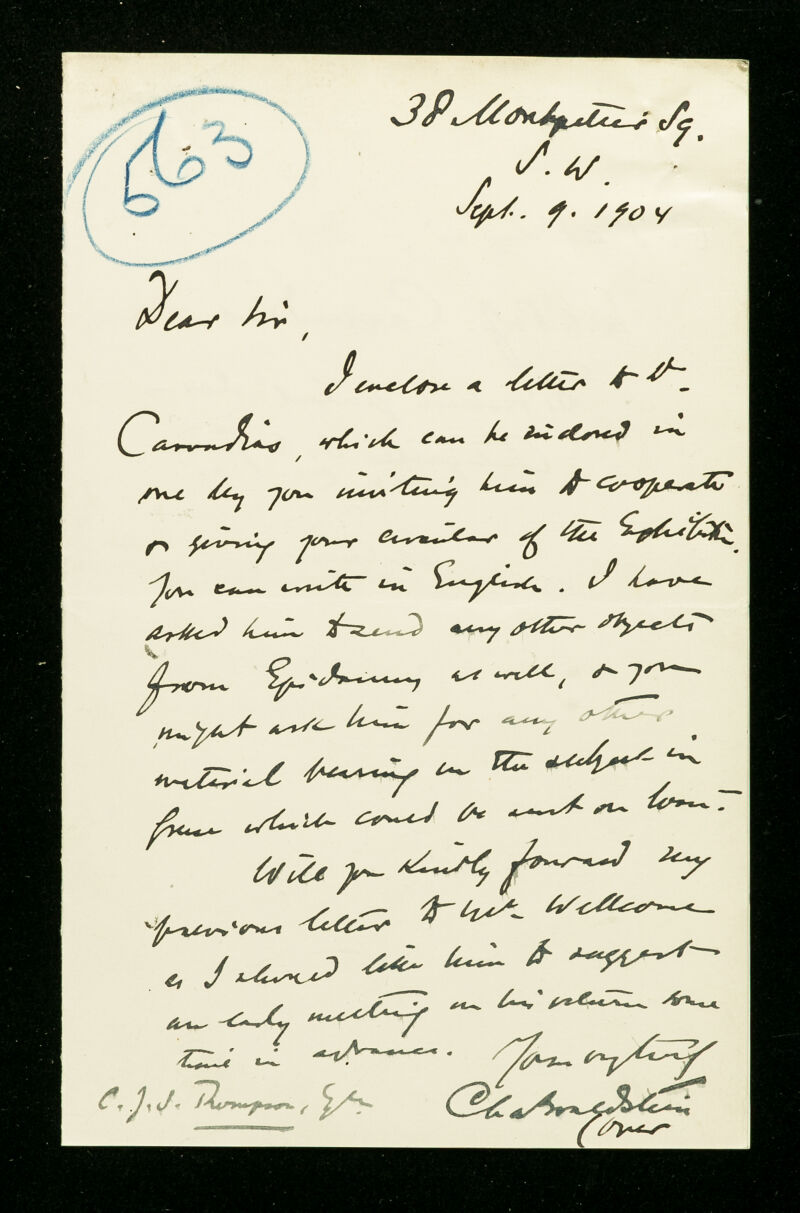 563
38 Montpelier Sq.
S. W.
Sept. 9. 1904
Dear Sir,
I enclose a letter to Dr.
Cavvadias, which can be enclosed in
one by you inviting him to cooperate
& giving your circular of the Exhibition.
You can write in English. I have
asked him to send any other objects
from Epidaurus as well, & you
might ask him for any other
material bearing on the subject in
Greece which could be sent on loan.
Will you kindly forward my
previous letter to Mr. Wellcome
as I should like him to suggest
an early meeting on his return some
time in advance. Yours vy truly
C. J. S. Thompson, Esq.
Cha Waldstein
(over